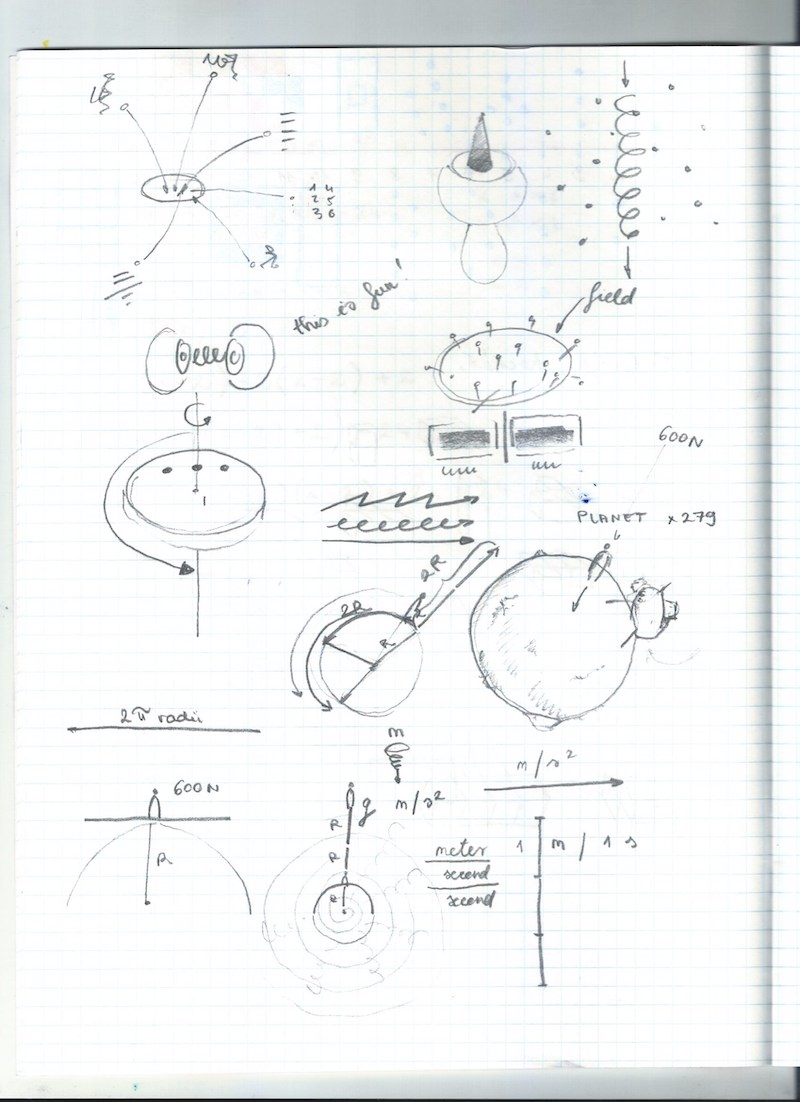 1 4
2 5
3 6
this is fun!
field
600N
PLANET x 279
2R
2R
R
2π radii
m
m/s²
600N
g m/s²
R
R
R
R
meter
second
second
1 m / 1 s